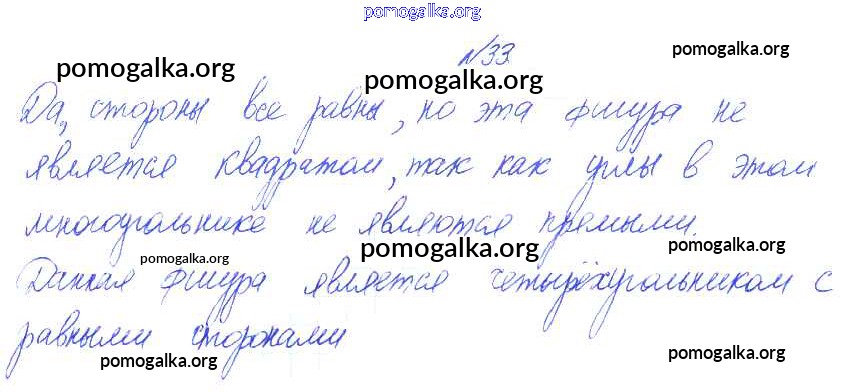 pomogalka.org
№33.
pomogalka.org pomogalka.org pomogalka.org
Да, стороны все равны, но эта фигура не
является квадратом, так как углы в этом
многоугольнике не являются прямыми.
pomogalka.org pomogalka.org pomogalka.org
Данная фигура является четырёхугольником с
равными сторонами
pomogalka.org pomogalka.org